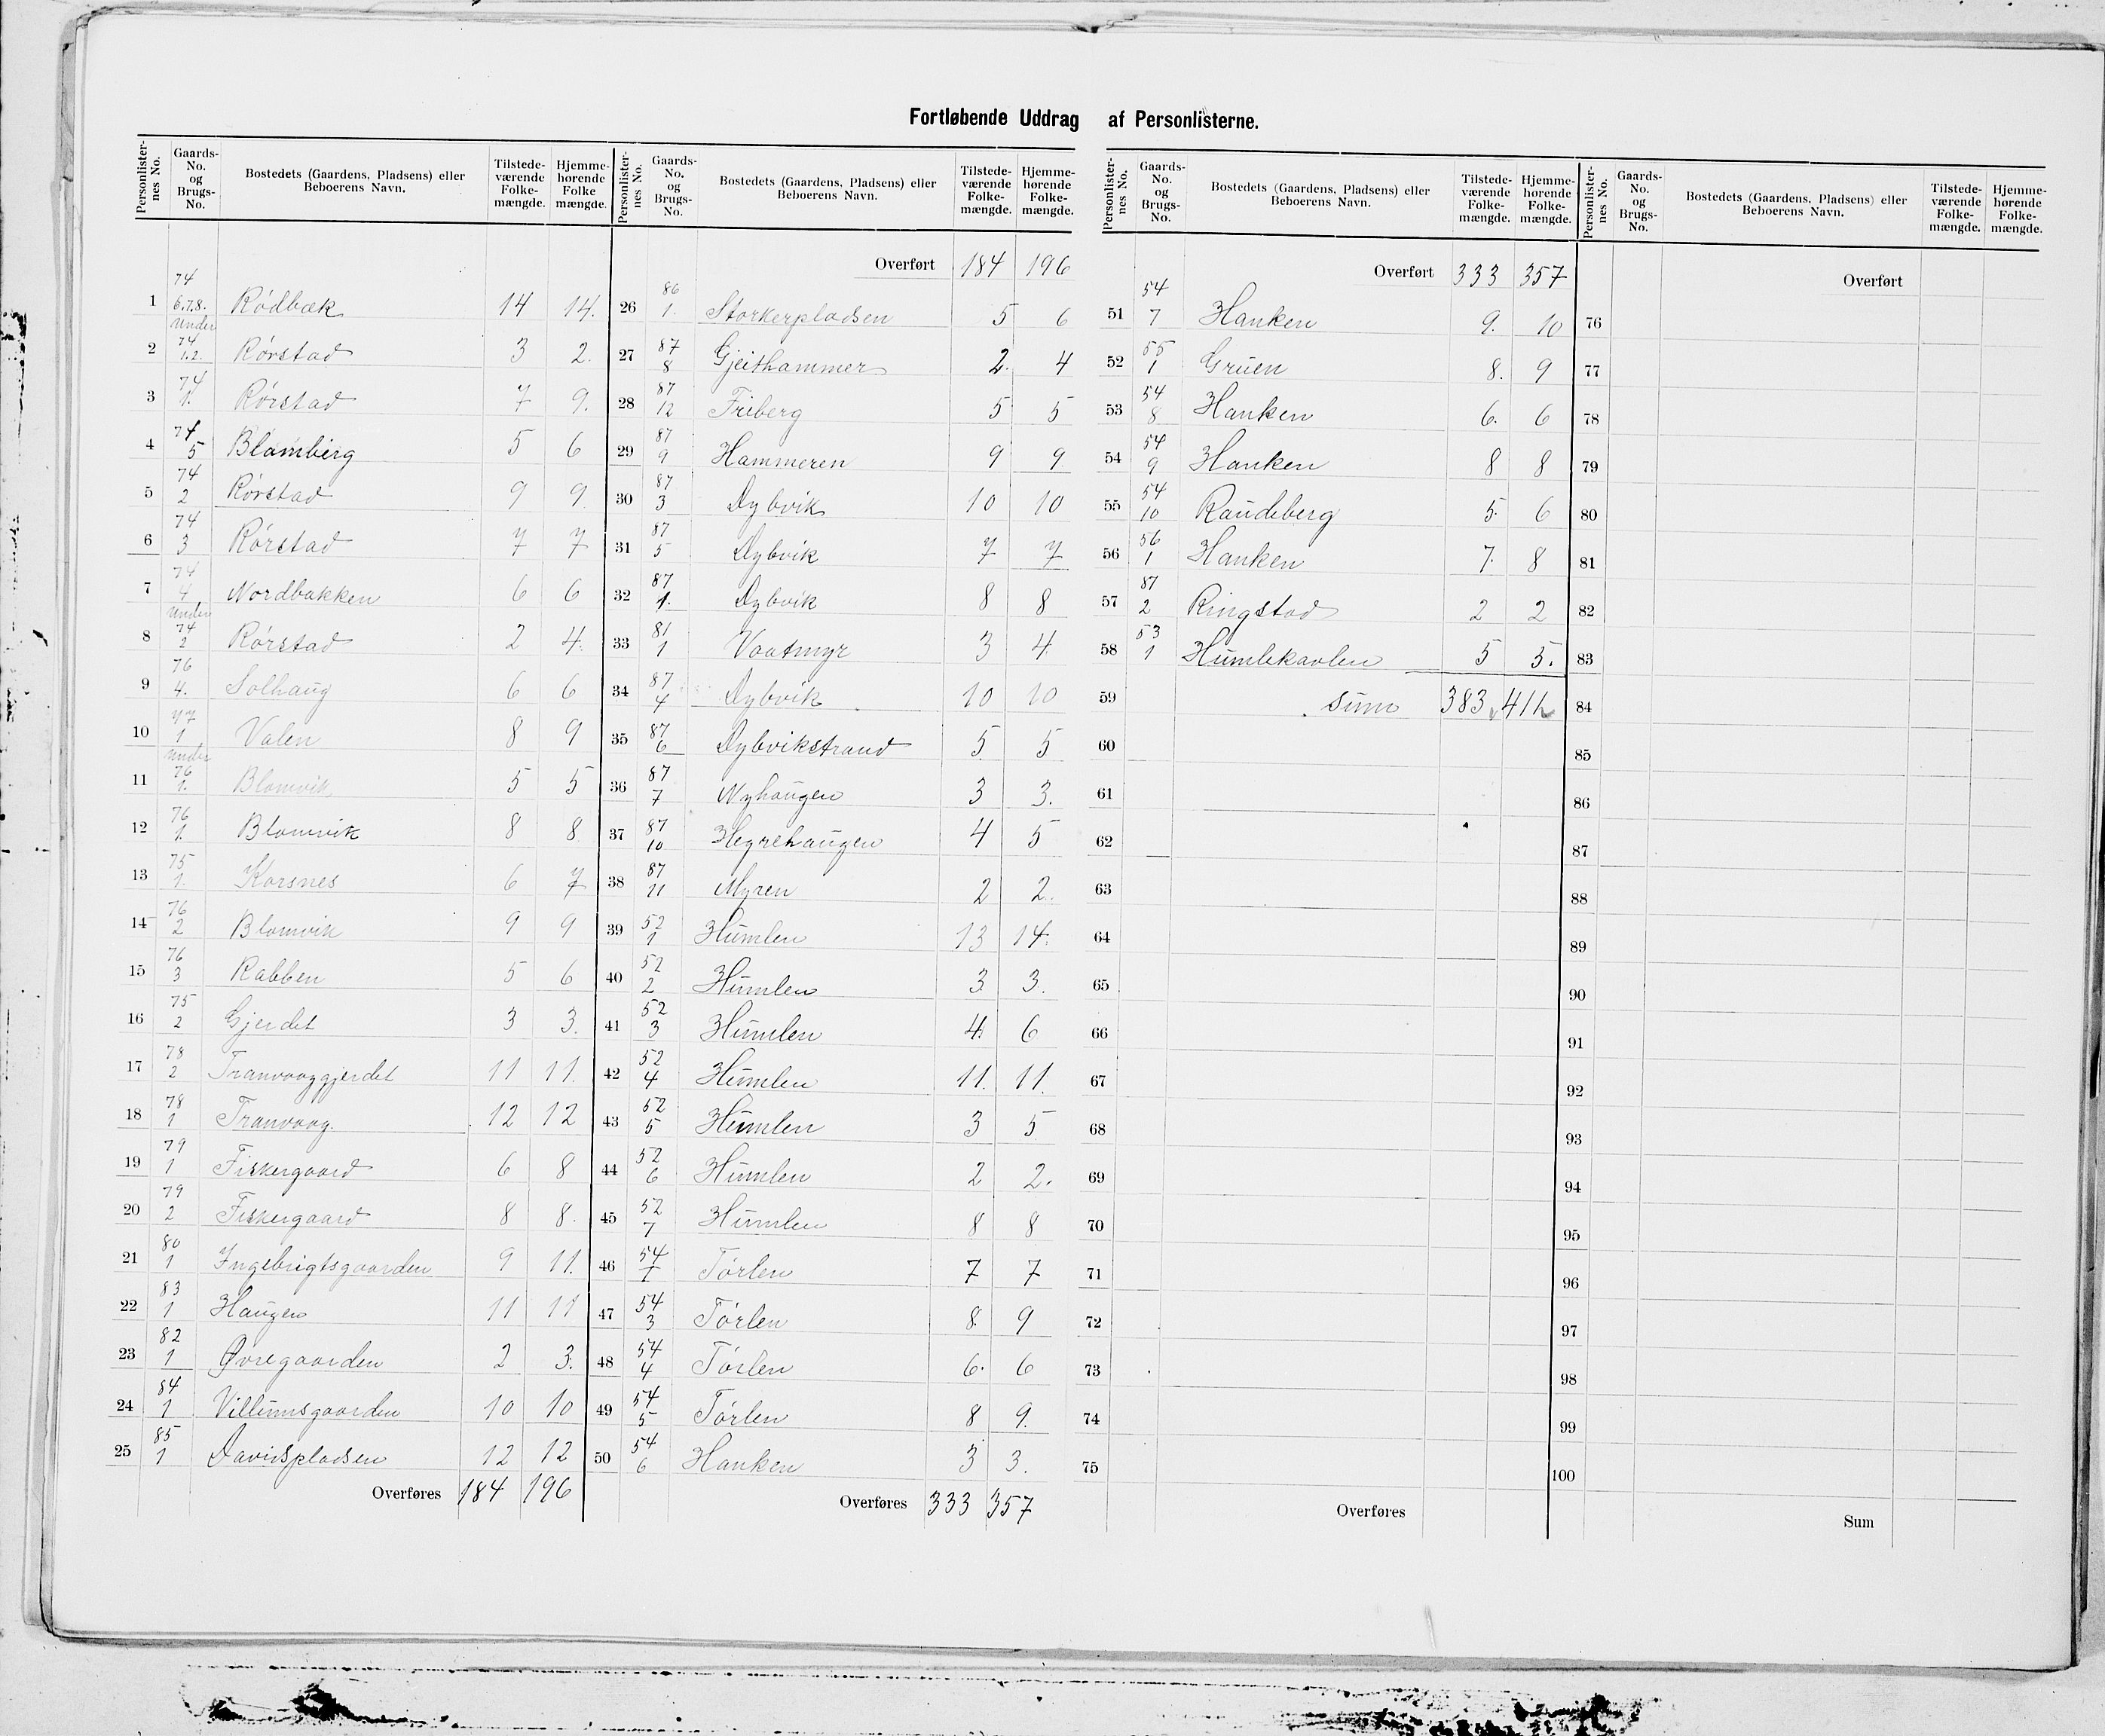 Fortløbende Uddrag af Personlisterne.
Personlister-nes No. | Gaards-No. og Brugs-No. | Bostedets (Gaardens, Pladsens) eller Beboerens Navn. | Tilstede-værende Folke-mængde. | Hjemme-hørende Folke mængde.
1 | 74 6.7.8. | Rødbæk | 14 | 14.
2 | Under 74 1.2. | Rørstad | 3 | 2.
3 | 74 1. | Rørstad | 7 | 9.
4 | 74 5 | Blomberg | 5 | 6
5 | 74 2 | Rørstad | 9 | 9
6 | 74 3 | Rørstad | 7 | 7
7 | 74 4 | Nordbakken | 6 | 6
8 | Under 74 2 | Rørstad | 2 | 4.
9 | 76 4. | Solhaug | 6 | 6
10 | 77 1 | Valen | 8 | 9
11 | Under 76 1. | Blomvik | 5 | 5
12 | 76 1. | Blomvik | 8 | 8
13 | 75 1. | Korsnes | 6 | 7
14 | 76 2 | Blomvik | 9 | 9
15 | 76 3 | Rabben | 5 | 6
16 | 75 2 | Gjerdet | 3 | 3.
17 | 78 2 | Tranvaaggjerdet | 11 | 11.
18 | 78 1 | Tranvaag. | 12 | 12
19 | 79 1 | Fiskergaard | 6 | 8
20 | 79 2 | Fiskergaard | 8 | 8.
21 | 80 1 | Ingebrigtsgaarden | 9 | 11.
22 | 83 1 | Haugen | 11 | 11
23 | 82 1 | Øvregaarden | 2 | 3.
24 | 84 1 | Villumsgaarden | 10 | 10
25 | 85 1 | Davidspladsen | 12 | 12
Overføres 184 196
Personlister-nes No. | Gaards-No. og Brugs-No. | Bostedets (Gaardens, Pladsens) eller Beboerens Navn. | Tilstede-værende Folke-mængde. | Hjemme-hørende Folke-mængde.
Overført 184 196
26 | 86 1. | Storkerpladsen | 5 | 6
27 | 87 8 | Gjeithammer | 2. | 4
28 | 87 12 | Friberg | 5 | 5
29 | 87 9 | Hammeren | 9 | 9
30 | 87 3 | Dybvik | 10 | 10
31 | 87 5 | Dybvik | 7 | 7
32 | 87 1. | Dybvik | 8 | 8
33 | 81 1 | Vaatmyr | 3 | 4
34 | 87 4 | Dybvik | 10 | 10
35 | 87 6 | Dybvikstrand | 5 | 5
36 | 87 7 | Nyhaugen | 3 | 3.
37 | 87 10 | Hegrehaugen | 4 | 5
38 | 87 11 | Myren | 2 | 2.
39 | 52 1 | Humlen | 13 | 14.
40 | 52 2 | Humlen | 3 | 3.
41 | 52 3 | Humlen | 4. | 6
42 | 52 4 | Humlen | 11. | 11.
43 | 52 5 | Humlen | 3 | 5
44 | 52 6 | Humlen | 2 | 2.
45 | 52 7 | Humlen | 8 | 8
46 | 54 1 | Tørlen | 7 | 7
47 | 54 3 | Tørlen | 8. | 9
48 | 54 4 | Tørlen | 6. | 6
49 | 54 5 | Tørlen | 8 | 9.
50 | 54 6 | Hanken | 3 | 3.
Overføres 333 357
Personlister-nes No. | Gaards-No. og Brugs-No. | Bostedets (Gaardens, Pladsens) eller Beboerens Navn. | Tilstede-værende Folke-mængde. | Hjemme-hørende Folke-mængde.
Overført 333 357
51 | 54 7 | Hanken | 9. | 10
52 | 55 1 | Gruen | 8. | 9
53 | 54 8 | Hanken | 6. | 6
54 | 54 9 | Hanken | 8 | 8
55 | 54 10 | Raudeberg | 5. | 6
56 | 56 1 | Hanken | 7. | 8
57 | 87 2 | Ringstad | 2 | 2
58 | 53 1 | Humlekavlen | 5 | 5.
59 | Sum | 383 | 411
60
61
62
63
64
65
66
67
68
69
70
71
72
73
74
75
Overføres
Personlister-nes No. | Gaards-No. og Brugs-No. | Bostedets (Gaardens, Pladsens) eller Beboerens Navn. | Tilstede-værende Folke-mængde. | Hjemme-hørende Folke-mængde.
Overført
76
77
78
79
80
81
82
83
84
85
86
87
88
89
90
91
92
93
94
95
96
97
98
99
100
Sum